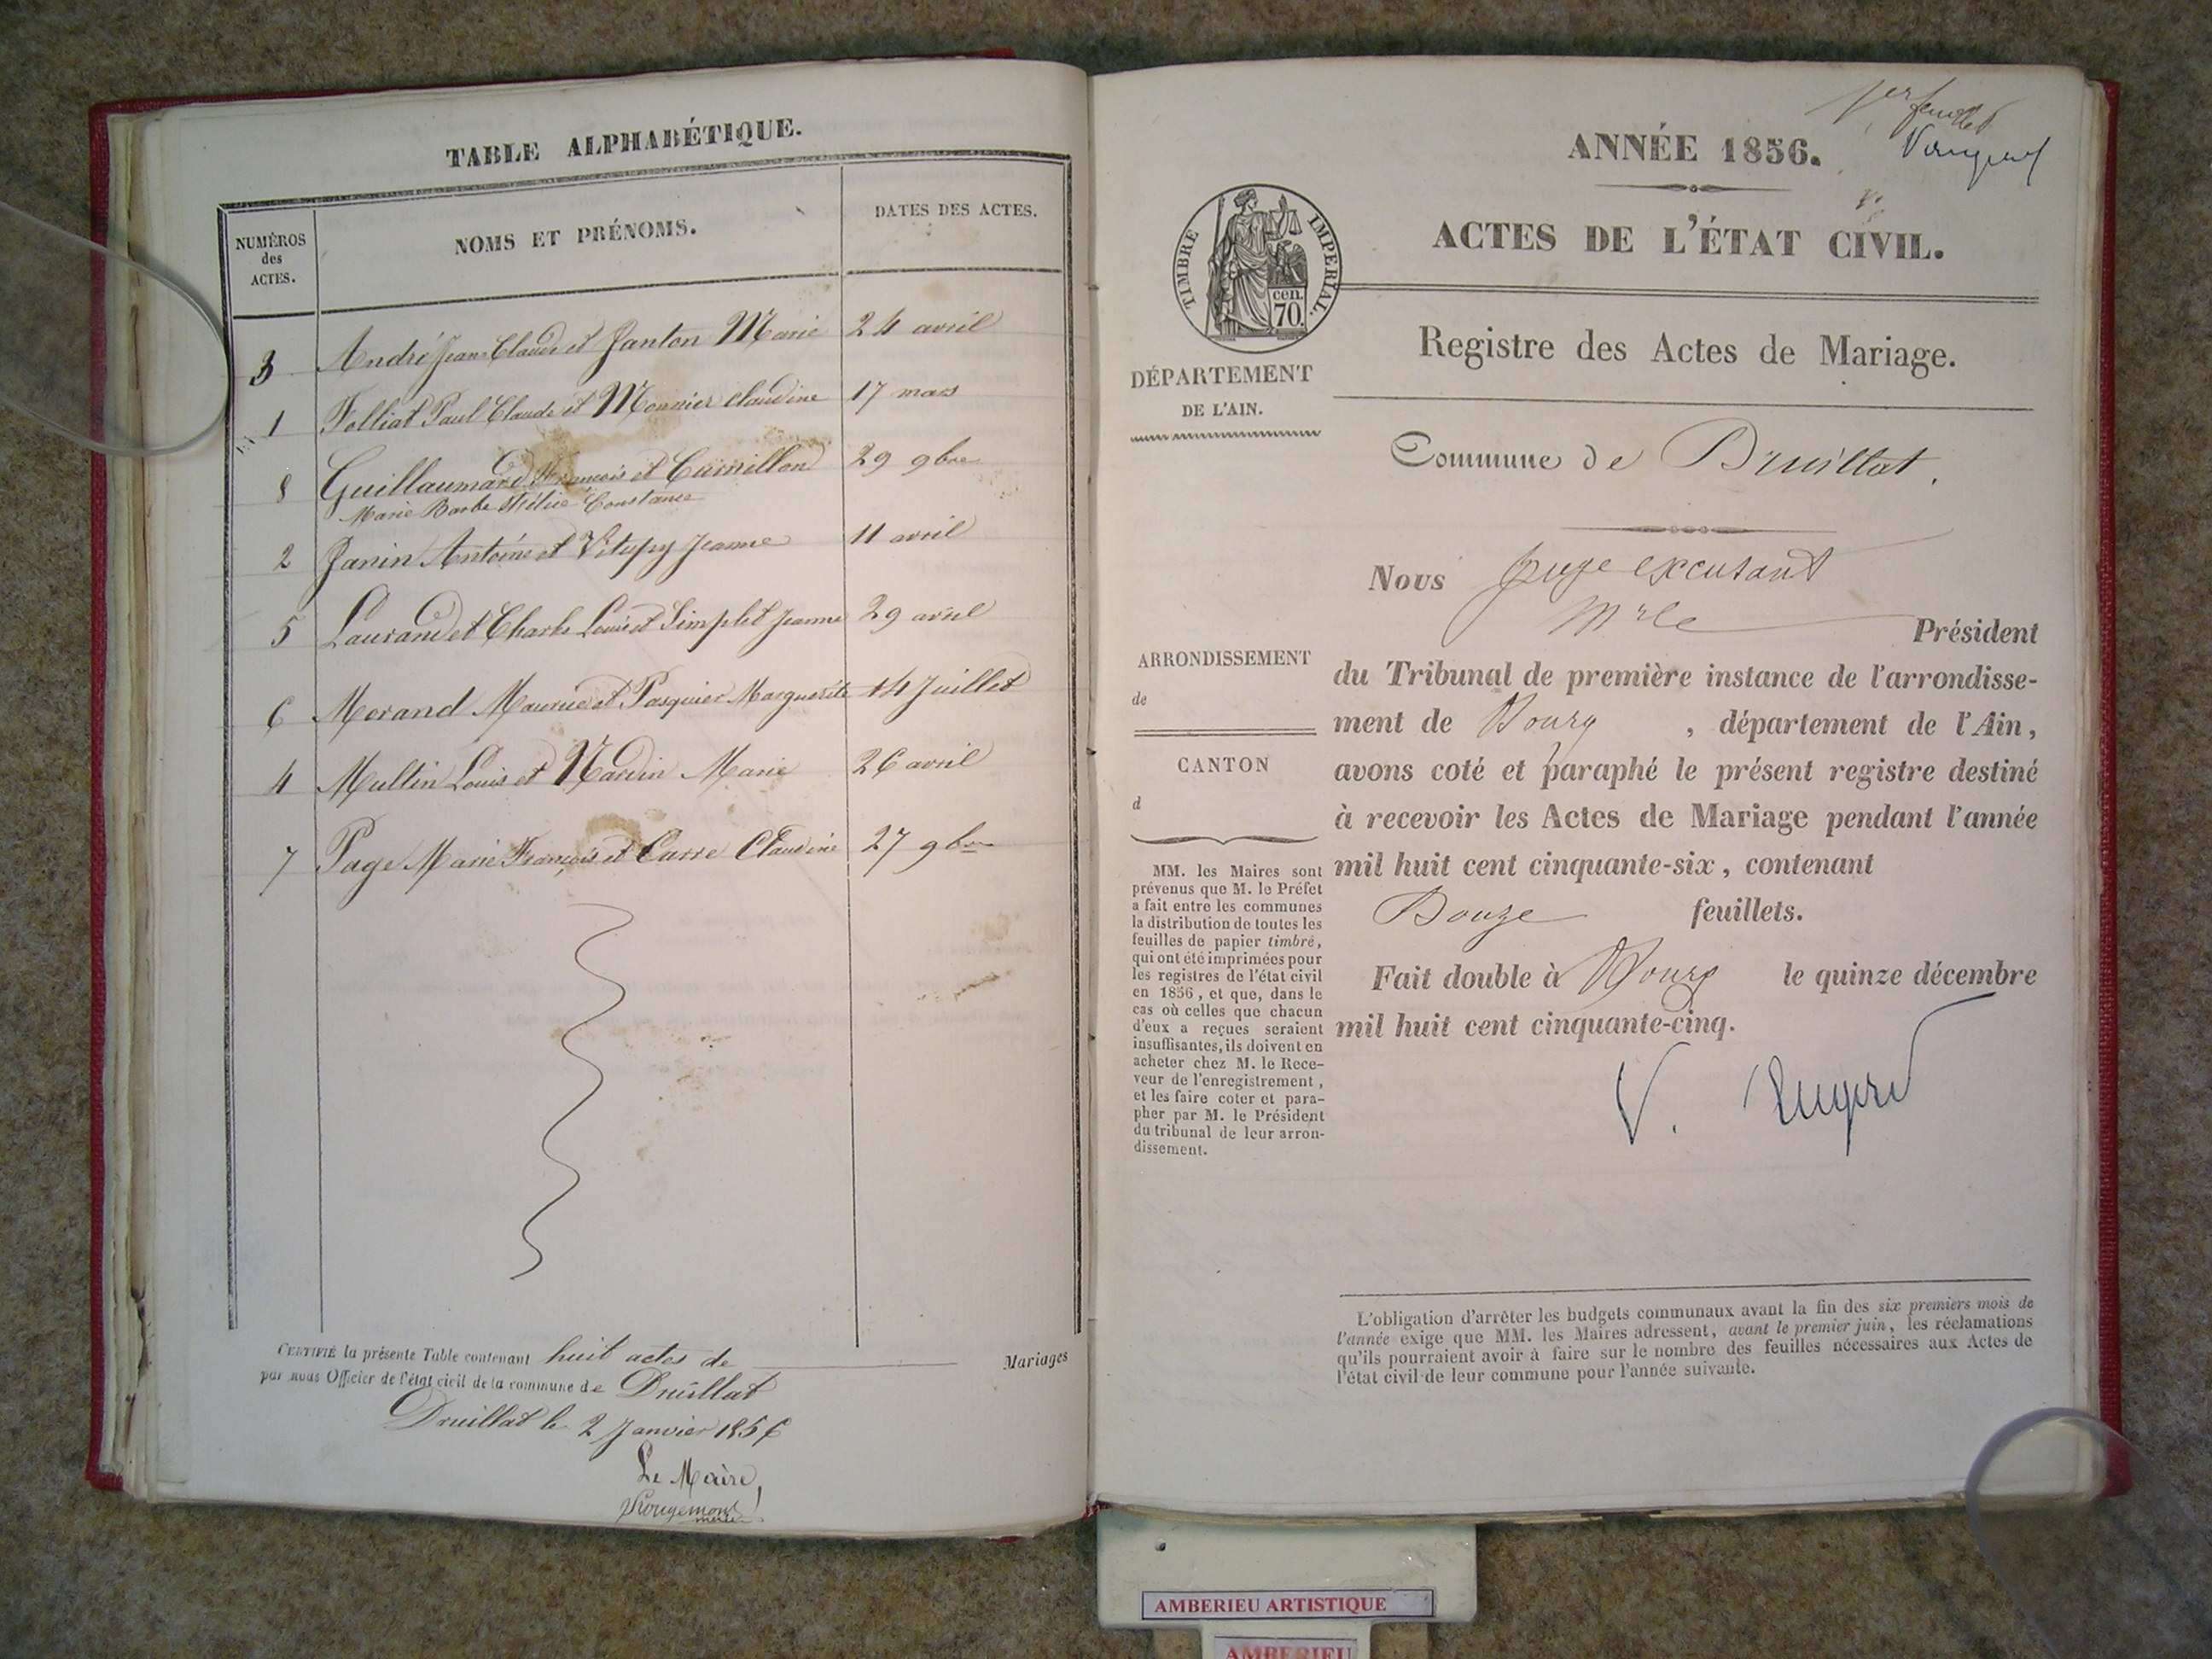 TABLE ALPHABÉTIQUE.
NUMÉROS
des
ACTES.
NOMS ET PRÉNOMS.
DATES DES ACTES.
3 André Jean Claude et Janton Marie 24 avril
1 Folliat Paul Claude et Monnier Claudine 17 mars
8 Guillaumard François et Curnillon 29 9bre
Marie Barbe Constance
2 Janin Antoine et Vitupy Jeanne 11 avril
5 Laurandet Charle Louis et Simplet Jeanne 29 avril
6 Morand Maurice et Pasquier Marguerite 14 Juillet
4 Multin Louis et Nardin Marie 26 avril
7 Page Marie François et Carre Claudine 27 9bre
CERTIFIÉ la présente Table contenant huit actes de Mariages
par nous Officier de l'état civil de la commune de Druillat
Druillat le 2 Janvier 1856
Le Maire,
Rougemont
1er feuillet
ANNÉE 1856.
ACTES DE L'ÉTAT CIVIL.
TIMBRE IMPERIAL.
cen.
70.
Registre des Actes de Mariage.
DÉPARTEMENT
DE L'AIN.
Commune de Druillat.
Nous juge excusant
Mr le Président
ARRONDISSEMENT
de
CANTON
d
du Tribunal de première instance de l'arrondisse-
ment de Bourg , département de l'Ain,
avons coté et paraphé le présent registre destiné
à recevoir les Actes de Mariage pendant l'année
mil huit cent cinquante-six, contenant
Douze feuillets.
Fait double à Bourg le quinze décembre
mil huit cent cinquante-cinq.
MM. les Maires sont
prévenus que M. le Préfet
a fait entre les communes
la distribution de toutes les
feuilles de papier timbré,
qui ont été imprimées pour
les registres de l'état civil
en 1856, et que, dans le
cas où celles que chacun
d'eux a reçues seraient
insuffisantes, ils doivent en
acheter chez M. le Rece-
veur de l'enregistrement,
et les faire coter et para-
pher par M. le Président
du tribunal de leur arron-
dissement.
L'obligation d'arrêter les budgets communaux avant la fin des six premiers mois de
l'année exige que MM. les Maires adressent, avant le premier juin, les réclamations
qu'ils pourraient avoir à faire sur le nombre des feuilles nécessaires aux Actes de
l'état civil de leur commune pour l'année suivante.
AMBERIEU ARTISTIQUE
AMBERIEU